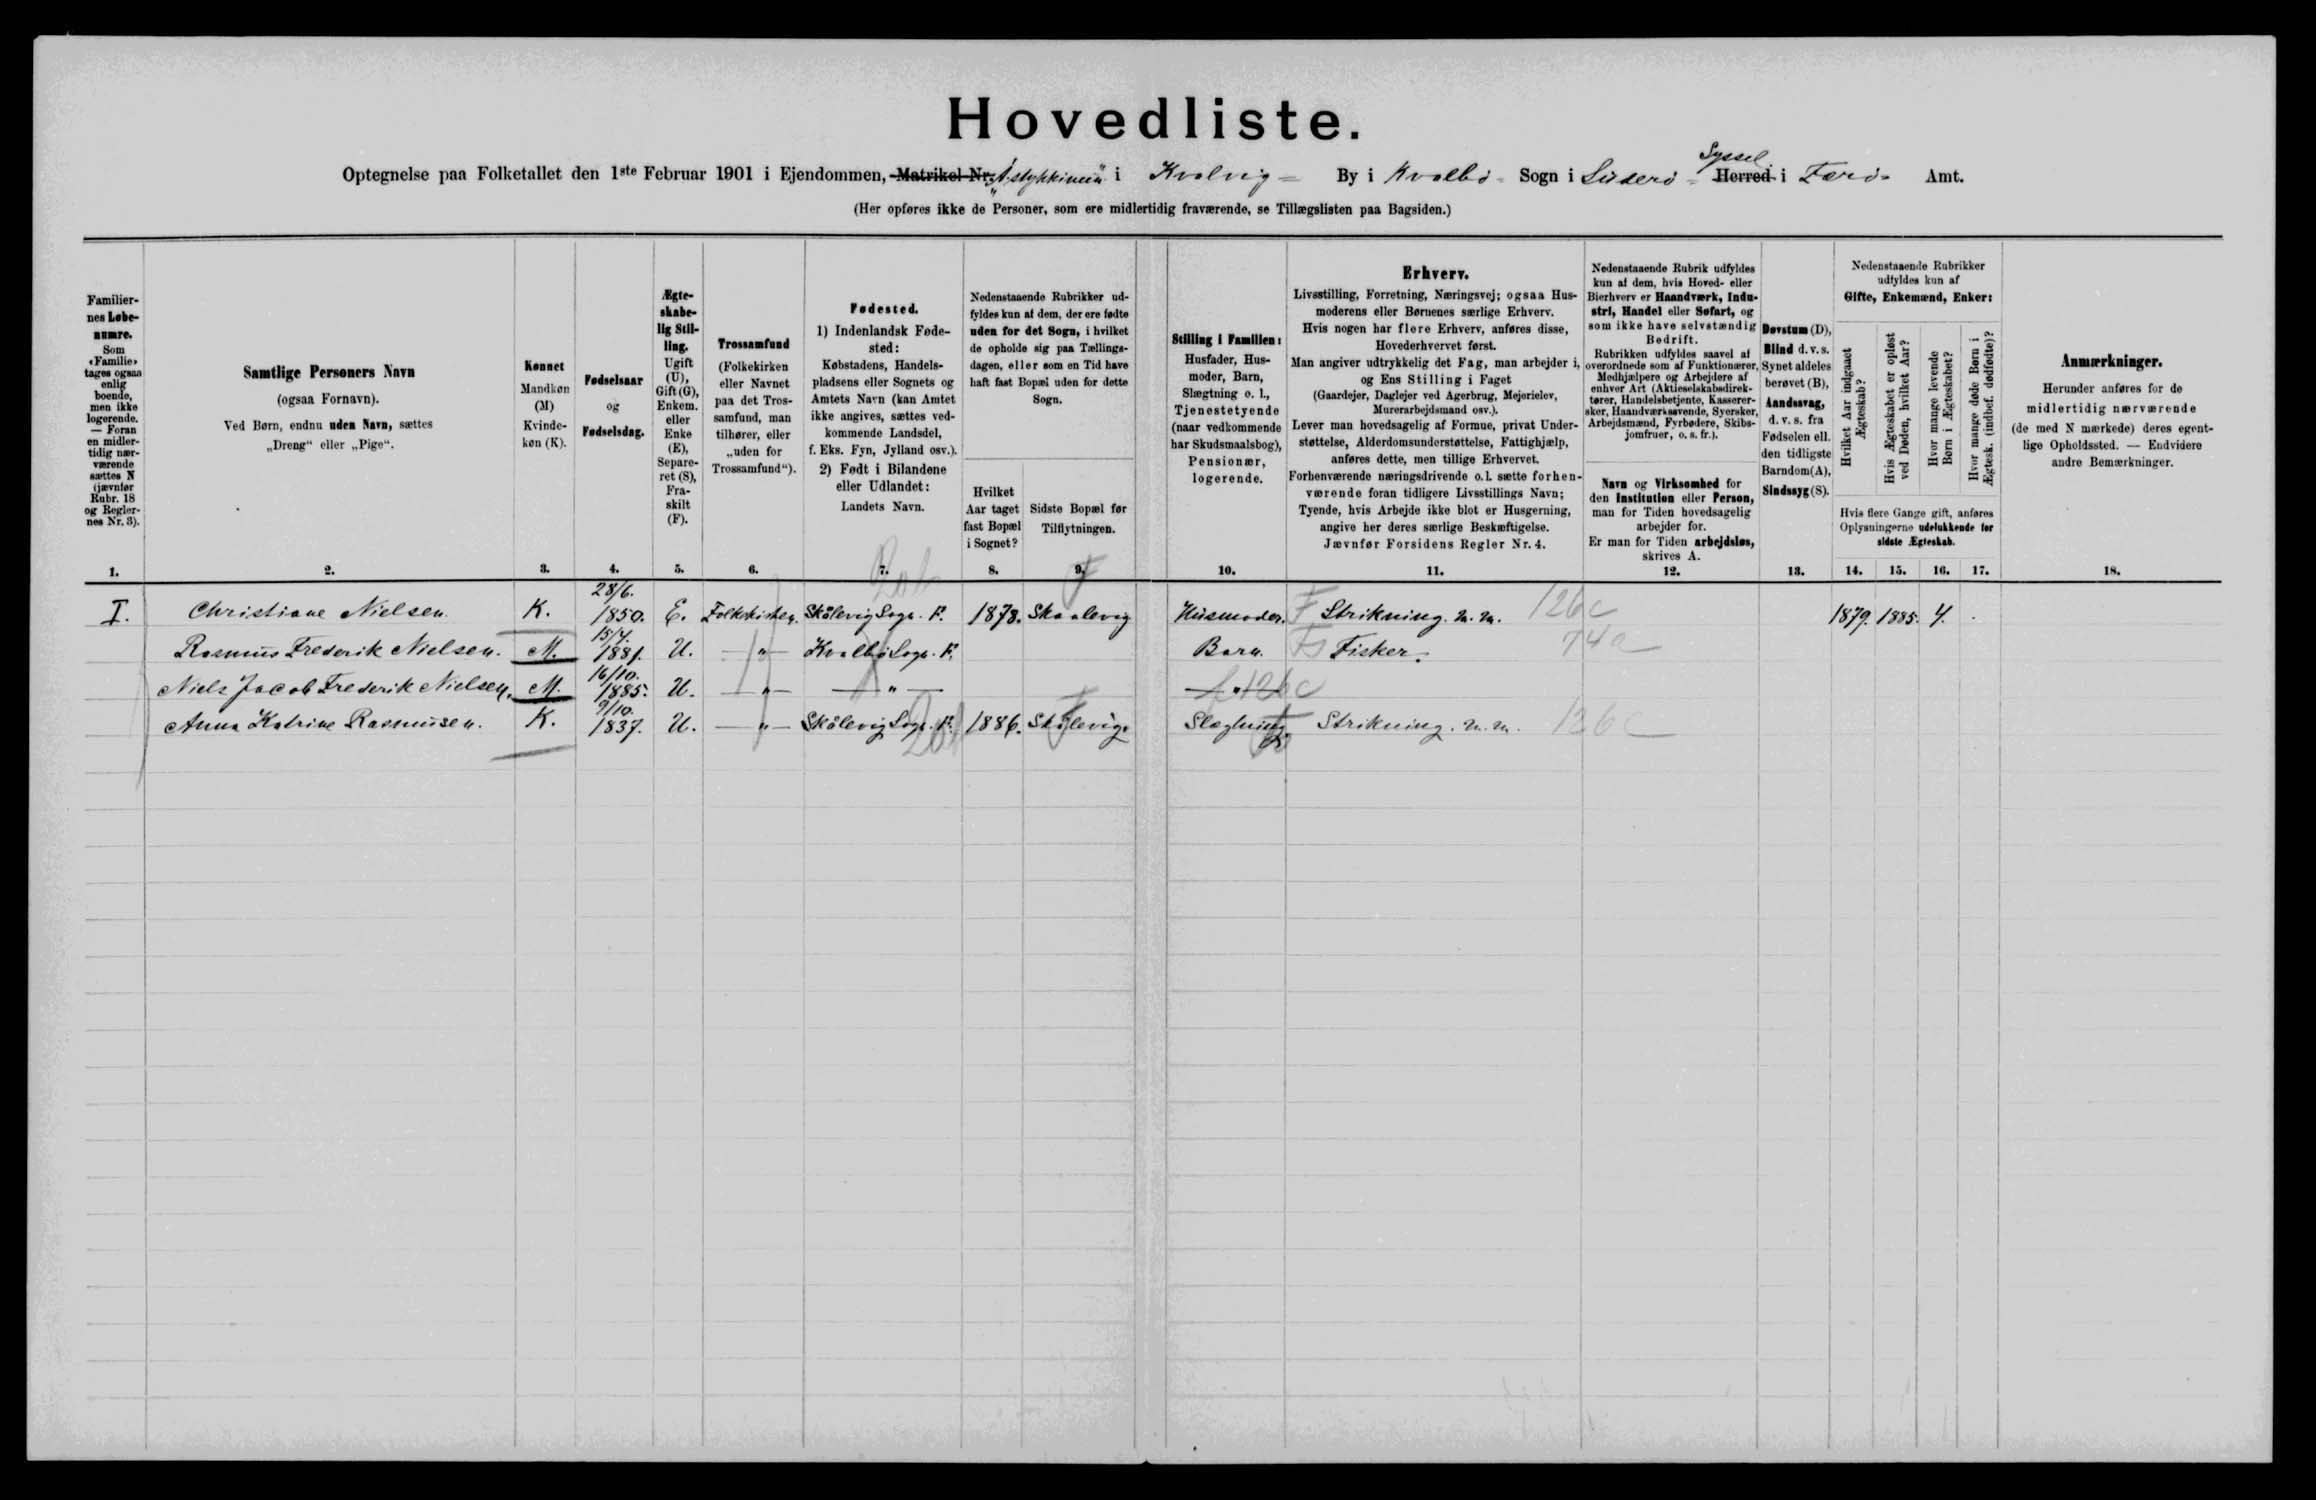 Hovedliste.
Optegnelse paa Folketallet den 1ste Februar 1901 i Ejendommen, Matrikel Nr. i Kvalvig = By i Kvalbø = Sogn i Suderø = Herred Syssel i Færø = Amt.
(Her opføres ikke de Personer, som ere midlertidig fraværende, se Tillægslisten paa Bagsiden.)
Familiernes Løbenumre.
Som «Familie» tages ogsaa enlig boende, men ikke logerende. — Foran en midlertidig nærværende sættes N (jævnfør Rubr. 18 og Reglernes Nr. 3).
Samtlige Personers Navn
(ogsaa Fornavn).
Ved Børn, endnu uden Navn, sættes
„Dreng“ eller „Pige“.
Kønnet
Mandkøn (M)
Kvindekøn (K).
Fødselsaar
og
Fødselsdag.
Ægteskabelig Stilling.
Ugift (U), Gift (G), Enkem. eller Enke (E), Separeret (S), Fraskilt (F).
Trossamfund
(Folkekirken eller Navnet paa det Trossamfund, man tilhører, eller „uden for Trossamfund“).
Fødested.
1) Indenlandsk Fødested:
Købstadens, Handelspladsens eller Sognets og Amtets Navn (kan Amtet ikke angives, sættes vedkommende Landsdel, f. Eks. Fyn, Jylland osv.).
2) Født i Bilandene eller Udlandet:
Landets Navn.
Nedenstaaende Rubrikker udfyldes kun af dem, der ere fødte uden for det Sogn, i hvilket de opholde sig paa Tællingsdagen, eller som en Tid have haft fast Bopæl uden for dette Sogn.
Hvilket Aar taget fast Bopæl i Sognet?
Sidste Bopæl før Tilflytningen.
Stilling i Familien:
Husfader, Husmoder, Barn, Slægtning o. l., Tjenestetyende (naar vedkommende har Skudsmaalsbog), Pensionær, logerende.
Erhverv.
Livsstilling, Forretning, Næringsvej; ogsaa Husmoderens eller Børnenes særlige Erhverv.
Hvis nogen har flere Erhverv, anføres disse, Hovederhvervet først.
Man angiver udtrykkelig det Fag, man arbejder i, og Ens Stilling i Faget
(Gaardejer, Daglejer ved Agerbrug, Mejerielev, Murerarbejdsmand osv.).
Lever man hovedsagelig af Formue, privat Understøttelse, Alderdomsunderstøttelse, Fattighjælp, anføres dette, men tillige Erhvervet.
Forhenværende næringsdrivende o. l. sætte forhenværende foran tidligere Livsstillings Navn;
Tyende, hvis Arbejde ikke blot er Husgerning, angive her deres særlige Beskæftigelse.
Jævnfør Forsidens Regler Nr. 4.
Nedenstaaende Rubrik udfyldes kun af dem, hvis Hoved- eller Bierhverv er Haandværk, Industri, Handel eller Søfart, og som ikke have selvstændig Bedrift.
Rubrikken udfyldes saavel af overordnede som af Funktionærer, Medhjælpere og Arbejdere af enhver Art (Aktieselskabsdirektører, Handelsbetjente, Kasserersker, Haandværkssvende, Syersker, Arbejdsmænd, Fyrbødere, Skibsjomfruer, o. s. fr.).
Navn og Virksomhed for den Institution eller Person, man for Tiden hovedsagelig arbejder for.
Er man for Tiden arbejdsløs, skrives A.
Døvstum (D),
Blind d. v. s. Synet aldeles berøvet (B),
Aandssvag, d. v. s. fra Fødselen ell. den tidligste Barndom (A),
Sindssyg (S).
Nedenstaaende Rubrikker udfyldes kun af
Gifte, Enkemænd, Enker:
Hvilket Aar indgaaet Ægteskab?
Hvis Ægteskabet er opløst ved Døden, hvilket Aar?
Hvor mange levende Børn i Ægteskabet?
Hvor mange døde Børn i Ægtesk. (indbef. dødfødte)?
Hvis flere Gange gift, anføres Oplysningerne udelukkende for sidste Ægteskab.
Anmærkninger.
Herunder anføres for de midlertidig nærværende (de med N mærkede) deres egentlige Opholdssted. — Endvidere andre Bemærkninger.
1. 2. 3. 4. 5. 6. 7. 8. 9. 10. 11. 12. 13. 14. 15. 16. 17. 18.
I. Christiane Nielsen. K. 28/6. 1850. E. Folkekirken. Skålevig Sogn. F. 1878. Skaalevig Husmoder. F Strikning. m. m. 126c 1879. 1885. 4.
Rasmus Frederik Nielsen. M. 15/4. 1881. U. — " — Kvalbø Sogn. F. Barn. Fisker. 74a
Niels Jacob Frederik Nielsen. M. 16/10. 1885. U. — " — — " — — " — 126c
Anna Katrine Rasmusen. K. 9/10. 1837. U. — " — Skålevig Sogn. F. 1886. Skålevig. Slægtning. Strikning. m. m. 126c